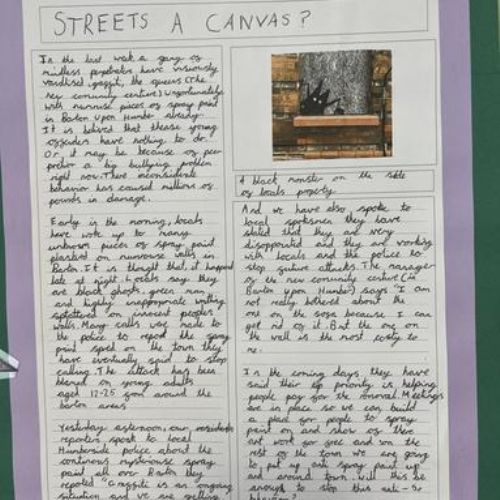 STREETS A CANVAS?
In the last week a gang of
mindless perpetrators have viciously
vandilised , the queens (the
new community centure) unfortunately
with numrouse pieces of spray paint
in Barton upon Humber already.
It is belived that thease young
offenders have nothing to do.
Or it may be because of peer
preshor a big bullying problem
right now. There inconsiderate
behavior has caused millions of
pounds in damage.
Early in the morning, locals
have woke up to many
unknown pieces of spray paint
plasted on numrouse walls in
Barton. It is thought that, it happend
late at night. Locals say they
are black ghosts, green men,
and highly inappropriate writing
splattered on innocent peoples
walls. Many calls were made to
the police to report the spray
paint sped on the town they
have eventually said to stop
calling. The attack has been
blamed on young adults
aged 12-25 from around the
barton area.
Yesterday afternoon, our
reporters spoke to local
Humberside police about the
continous mysteriouse spray
paint all over Barton they
repoted "Graffiti is an ongoing
situation and we are
A black monster on the side
of locals property.
And we have also spoke to
local spoksmen they have
stated that they are very
disappointed and they are working
with locals and the police to
stop future attacks. The manager
of the new community centure (in
Barton upon Humber) says "I am
not really bothered about the
one on the sofa because I can
get rid of it. But the one on
the wall is the most costly to
me.
In the coming days, they have
said their top priority is, helping
people pay for the removal. Meetings
are in place so we can, build
a place for people to spray
paint on and show of their
art work for free and on the
rest of the town we are going
to put up anti spray paint
and around town. will this be
enough to stop this